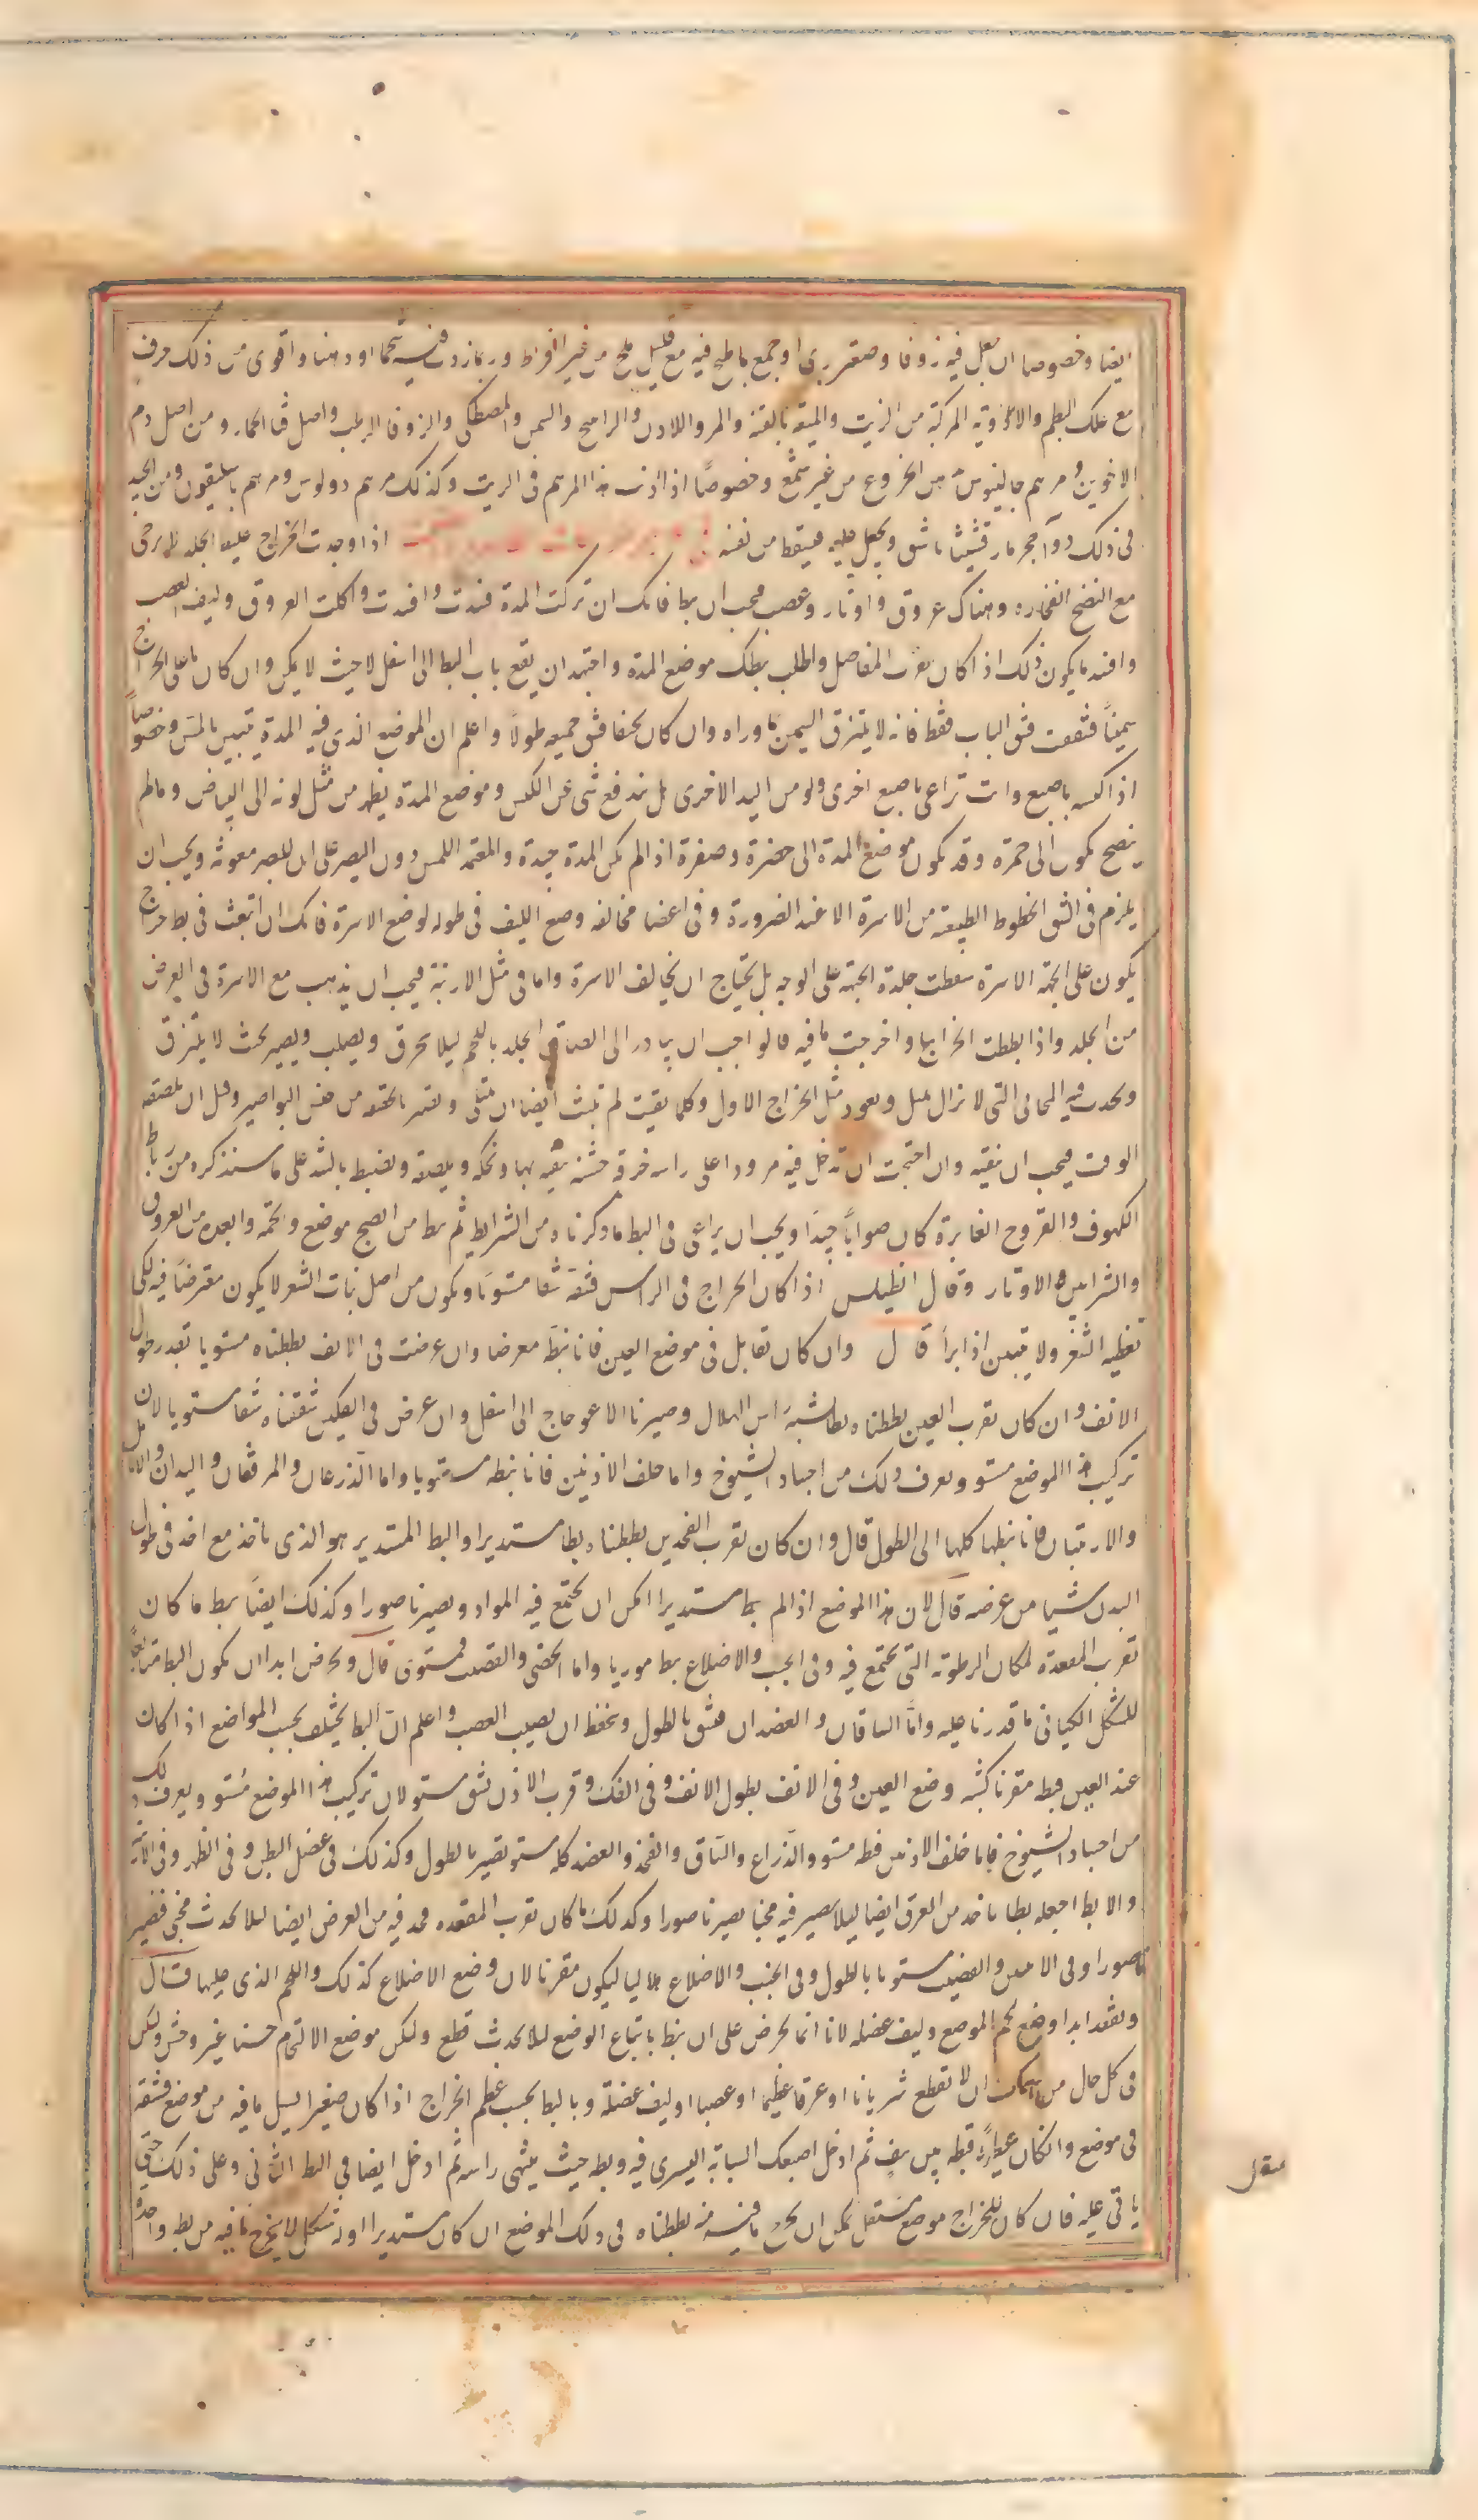 ايضا وخصوصا ان بعل فيه زوفا وصعتر برى او جمع ما طبخ فيه مع قليل ملح من غير افراط وربما زدت فيه شحما او دهنا واقوى من ذلك حرف
مع علك البطم والادوية المركبة من الزيت والميعة بالقنه والمر واللادن والراتينج والسمن والمصطكى والزوفا الرطب واصل قثا الحمار ومن اصل دم
الاخوين ومرهم جالينوس من الخروع من غير شمع وخصوصًا اذا اذيب هذا المرهم فى الزيت وكذلك مرهم دولوس ومرهم باسليقون ومن الجيد
فى ذلك دوآ حجر مارقشيثا ماشق ويجعل عليه فيسقط من نفسه اذا وجدت الخراج عليه الجلد لا يرجى
مع النضج انفجاره وهناك عروق واوتار وعصب فيجب ان يبط فانك ان تركت المدة فسدت وافسدت واكلت العروق وليف العصب
وافند ما يكون ذلك اذا كان بقرب المفاصل واطلب ببطك موضع المدة واجتهد ان يقع باب البط الى اسفل الا حيث لا يمكن وان كان ما على الخراج
سمينًا فشققت فشق الباب فقط فانه لا يتنزق السمين ما وراه وان كان نحيفا فشق جميعه طولًا واعلم ان الموضع الذى فيه المدة يتبين بالمس وخصوصًا
اذا كبسه باصبع وانت تراعى باصبع اخرى ولو من اليد الاخرى هل يندفع شى عن الكبس وموضع المدة يظهر من مثل لونه الى البياض وما لم
ينضج يكون الى حمرة وقد يكون موضع المدة الى خضرة وصفرة اذا لم تكن المدة جيدة والمعتمد اللمس دون البصر على ان للبصر معونة ويجب ان
يلزم فى الشق الخطوط الطبيعية من الاسرة الا عند الضرورة وفى اعضا مخالفه وضع الليف فى طوله لوضع الاسرة فانك ان اتبعت فى بط خراج
يكون على الجبهة الاسرة سقطت جلدة الجبهة على الوجه بل يحتاج ان يخالف الاسرة واما فى مثل الارنبة فيجب ان يذهب مع الاسرة فى العرض
من الجلد واذا بططت الخراجها واخرجت ما فيه فالواجب ان يبادر الى الصاق الجلد باللحم ليلا يحرق ويصلب ويصير بحيث لا يلتزق
ويحدث فيه المخابى التى لا تزال تمتلى وتعود مثل الخراج الاول وكلما بقيت لم تلبث ايضا ان تمتلى ويصير بالحقيقه من جنس البواصير وقبل ان تلصقه
الوقت فيجب ان ينقيه وان احتجت ان تدخل فيه مرودا على راسه خرقة خشنة ينقيه بها وتحكه ويلصقه ويضبط بالشد على ما سنذكره من رباط
الكهوف والقروح الغايرة كان صوابًا جيدًا ويجب ان يراعى فى البط ما ذكرنا ومن الشرايط ثم بط من انضج موضع وارقه وابعده من العروق
والشرايين والاوتار وقال انطيلس اذا كان الخراج فى الراس فشقه شقا مستويًا ويكون من اصل نبات الشعر لا يكون معترضًا فيه لكى
تغطيه الشعر ولا يتبين اذا برأ قال وان كان تقابل فى موضع العين فانا نبطه معرضا وان عرضت فى الانف بططناه مستويا بقدر طول
الانف وان كان بقرب العين بططناه بطا يشبه راس الهلال وصيرنا الاعوجاج الى اسفل وان عرض فى الفكين شققناه شقا مستويا لان
تركيب هذا الموضع مستو ويعرف ذلك من اجساد الشيوخ واما خلف الاذنين فانا نبطه مستويا واما الذراعان والمرفقان واليدان والانامل
والاربيتان فانا نبطها كلها الى الطول قال وان كان بقرب الفخذين بططناه بطا مستديرا والبط المستدير هو الذى ياخذ مع اخذه فى طول
البدن شيا من عرضه قال لان هذا الموضع اذا لم يبط مستديرا امكن ان يجتمع فيه المواد ويصير ناصورا وكذلك ايضًا يبط ما كان
بقرب المقعدة لمكان الرطوبة التى يجتمع فيه وفى الجنب والاضلاع بط موربا واما الخصى والقضيب فمستوى قال ويحرص ابدا ان يكون البط متابعًا
للشكل الكيانى ما قدرنا عليه وامّا الساقان والعضدان فنشق بالطول ونحفظ ان نصيب العصب واعلم ان البط يختلف بحسب المواضع اذا كان
عند العين فبطه مقرنا كشبه وضع العين وفى الانف بطول الانف وفى الفك وقرب الاذن بشق مستو لان تركيب هذا الموضع مستو ويعرف ذلك
من اجساد الشيوخ فاما خلف الاذنين فبطه مستو والذراع والساق والفخذ والعضد كله مستو يصير بالطول وكذلك فى عضل البطن وفى الظهر وفى الاربية
والابط اجعله بطا ياخذ من العرق ايضا ليلا يصير فيه مخبا يصير ناصورا وكذلك ما كان بقرب المقعده فخذ فيه من العرض ايضا ليلا يحدث مخبى فيصير
ناصورا وفى الانثيين والقضيب مستويا بالطول وفى الجنب والاضلاع هلاليا ليكون مقرنا لان وضع الاضلاع كذلك واللحم الذى عليها قال
وتفقد ابدا وضع لحم الموضع وليف عضله لانا انما نحرص على ان نبط باتباع الوضع لئلا يحدث قطع وليكن موضع الالتحام حسنا غير وحش ولكن
فى كل حال من امكنك ان لا تقطع شريانا او عرقا عظيما او عصبا او ليف عضلة وبالبط بحسب عظم الخراج اذا كان صغيرا يسيل ما فيه من موضع فشقه
فى موضع وان كان عظيما فبطه ثم ادخل اصبعك السبابة اليسرى فيه وبطه حيث ينتهى راسه ثم ادخل ايضا فى البط الثانى وعلى ذلك حتى
ياتى عليه فان كان للخراج موضع مستقل يمكن ان يخرج ما فيه منه بططناه فى ذلك الموضع ان كان مستديرا او له شكل لا يخرج ما فيه من بط واحدة